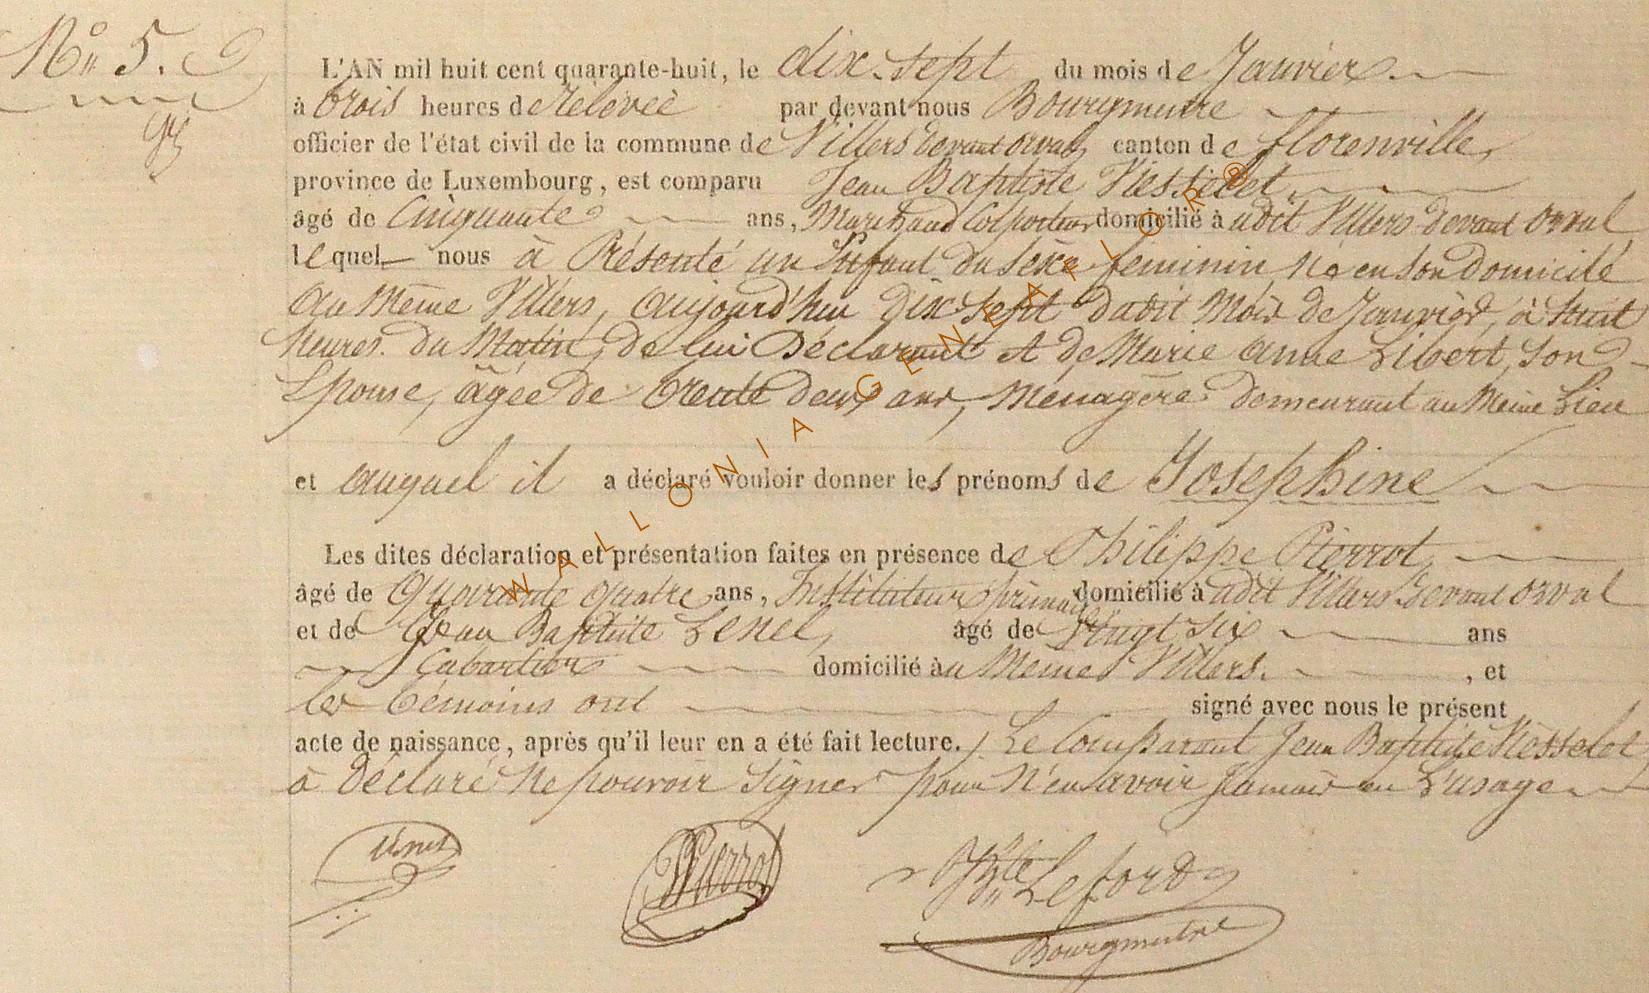 N° 5.
L'AN mil huit cent quarante-huit, le dix-sept du mois de Janvier.
à trois heures de rélévée par devant nous Bourgmestre
officier de l'état civil de la commune de Villers devant orval, canton de florenville,
province de Luxembourg, est comparu Jean Baptiste Nesselet,
âgé de Cinquante ans, Marchand Colporteur domicilié à udit Villers-devant orval
lequel nous à Présenté un Enfant du Sèxe féminin né en son domicile
au Même Villers, aujourd'hui dix Sept dudit Mois de Janvier, à huit
heures du Matin, de lui Déclarant et de Marie anne Libert, son
Epouse, âgée de trente deux ans, Menagère demeurant au Même Lieu
et auquel il a déclaré vouloir donner les prénoms de Josephine
Les dites déclaration et présentation faites en présence de Philippe Pierrot,
âgé de Quarante quatre ans, Instituteur primaire domicilié à udit Villers-devant orval
et de Jean Baptiste Lenel, âgé de Vingt six ans
Cabartier domicilié àu Même Villers. , et
les témoins ont signé avec nous le présent
acte de naissance, après qu'il leur en a été fait lecture. Le Comparant Jean Baptiste Nesselet,
à déclaré Ne pouvoir Signer pour N'en avoir Jamais eu L'usage
Pierrot
Jn Bte Leford
Bourgmestre
WALLONIA GENEAFLOR®